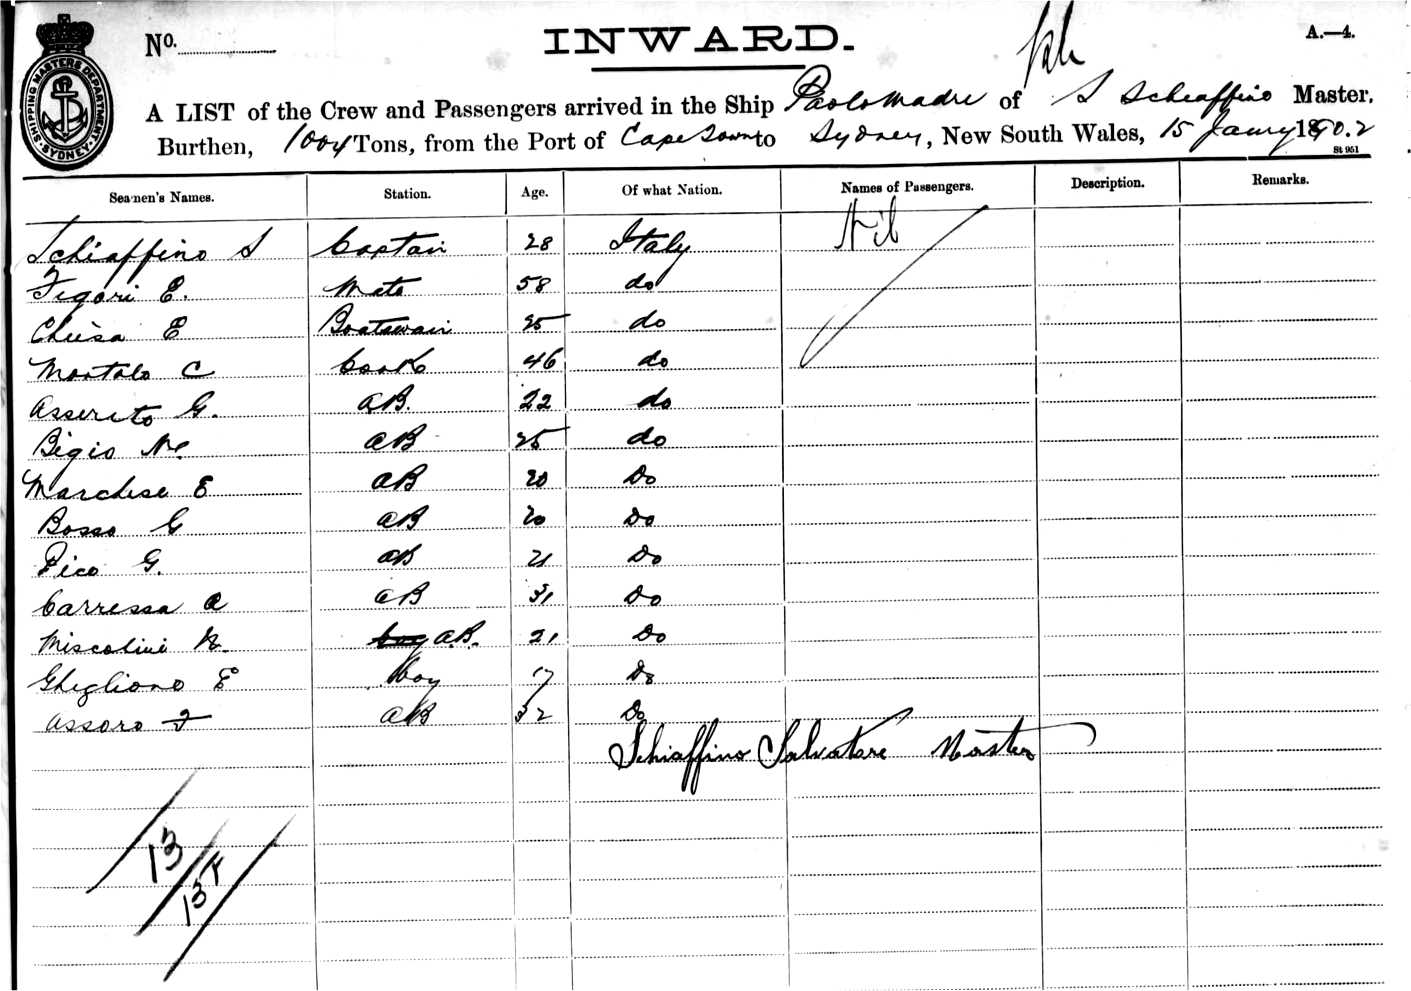 SHIPPING MASTERS DEPARTMENT. SYDNEY.
No.
INWARD.
A.—4.
A LIST of the Crew and Passengers arrived in the Ship Paolo Madre of S Schiaffino Master,
Burthen, 1004 Tons, from the Port of Cape Town to Sydney, New South Wales, 15 Janry 1890.2
St 951
Seamen's Names. Station. Age. Of what Nation. Names of Passengers. Description. Remarks.
Schiaffino S Captain 28 Italy Nil
Figari E. Mate 58 do
Chiesa E Boatswain 25 do
Mortolo C Cook 46 do
Assereto G. AB. 22 do
Bigio AB 25 do
Marchese E AB 20 Do
Bosso G AB 20 Do
Pico G. AB 21 Do
Carressa A AB 31 Do
Miscolini boy A.B. 21 Do
Ghigliono E boy 17 Do
Assoro F AB 32 Do
Schiaffino Salvatore Master
13